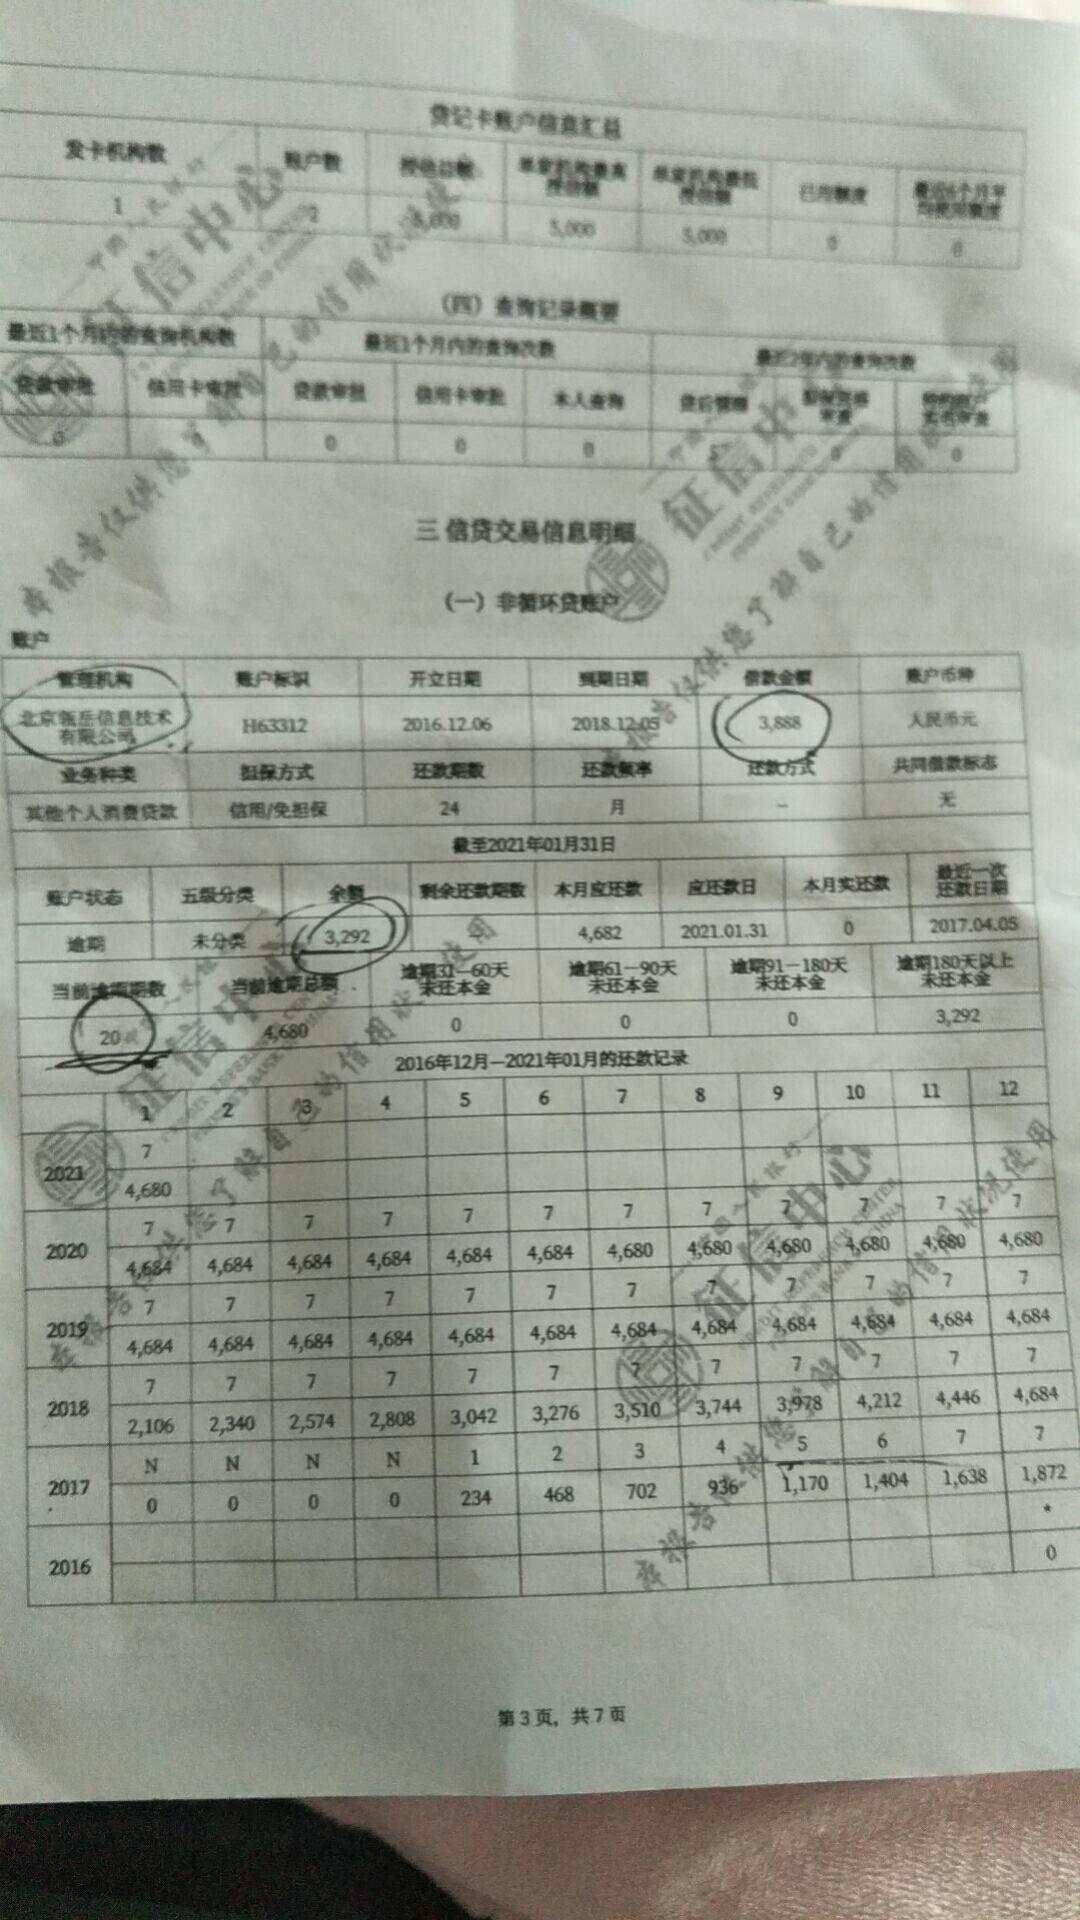 贷记卡账户信息汇总
发卡机构数 账户数 授信总额 单家机构最高授信额 单家机构最低授信额 已用额度 最近6个月平均使用额度
1 2 5,000 5,000 5,000 0 0
（四）查询记录概要
最近1个月内的查询机构数 最近1个月内的查询次数 最近2年内的查询次数
贷款审批 信用卡审批 贷款审批 信用卡审批 本人查询 贷后管理 担保资格审查 特约商户实名审查
0 0 0 0 5 0 0
三 信贷交易信息明细
（一）非循环贷账户
账户
管理机构 账户标识 开立日期 到期日期 借款金额 账户币种
北京瓴岳信息技术有限公司 H63312 2016.12.06 2018.12.05 3,888 人民币元
业务种类 担保方式 还款期数 还款频率 还款方式 共同借款标志
其他个人消费贷款 信用/免担保 24 月 -- 无
截至2021年01月31日
账户状态 五级分类 余额 剩余还款期数 本月应还款 应还款日 本月实还款 最近一次还款日期
逾期 未分类 3,292 4,682 2021.01.31 0 2017.04.05
当前逾期期数 当前逾期总额 逾期31—60天未还本金 逾期61－90天未还本金 逾期91－180天未还本金 逾期180天以上未还本金
20 4,680 0 0 0 3,292
2016年12月—2021年01月的还款记录
1 2 3 4 5 6 7 8 9 10 11 12
2021
7
4,680
2020
7 7 7 7 7 7 7 7 7 7 7 7
4,684 4,684 4,684 4,684 4,684 4,684 4,680 4,680 4,680 4,680 4,680 4,680
2019
7 7 7 7 7 7 7 7 7 7 7 7
4,684 4,684 4,684 4,684 4,684 4,684 4,684 4,684 4,684 4,684 4,684 4,684
2018
7 7 7 7 7 7 7 7 7 7 7 7
2,106 2,340 2,574 2,808 3,042 3,276 3,510 3,744 3,978 4,212 4,446 4,684
2017
N N N N 1 2 3 4 5 6 7 7
0 0 0 0 234 468 702 936 1,170 1,404 1,638 1,872
2016
*
0
第 3 页，共 7 页
征信中心
本报告仅供您了解自己的信用状况使用